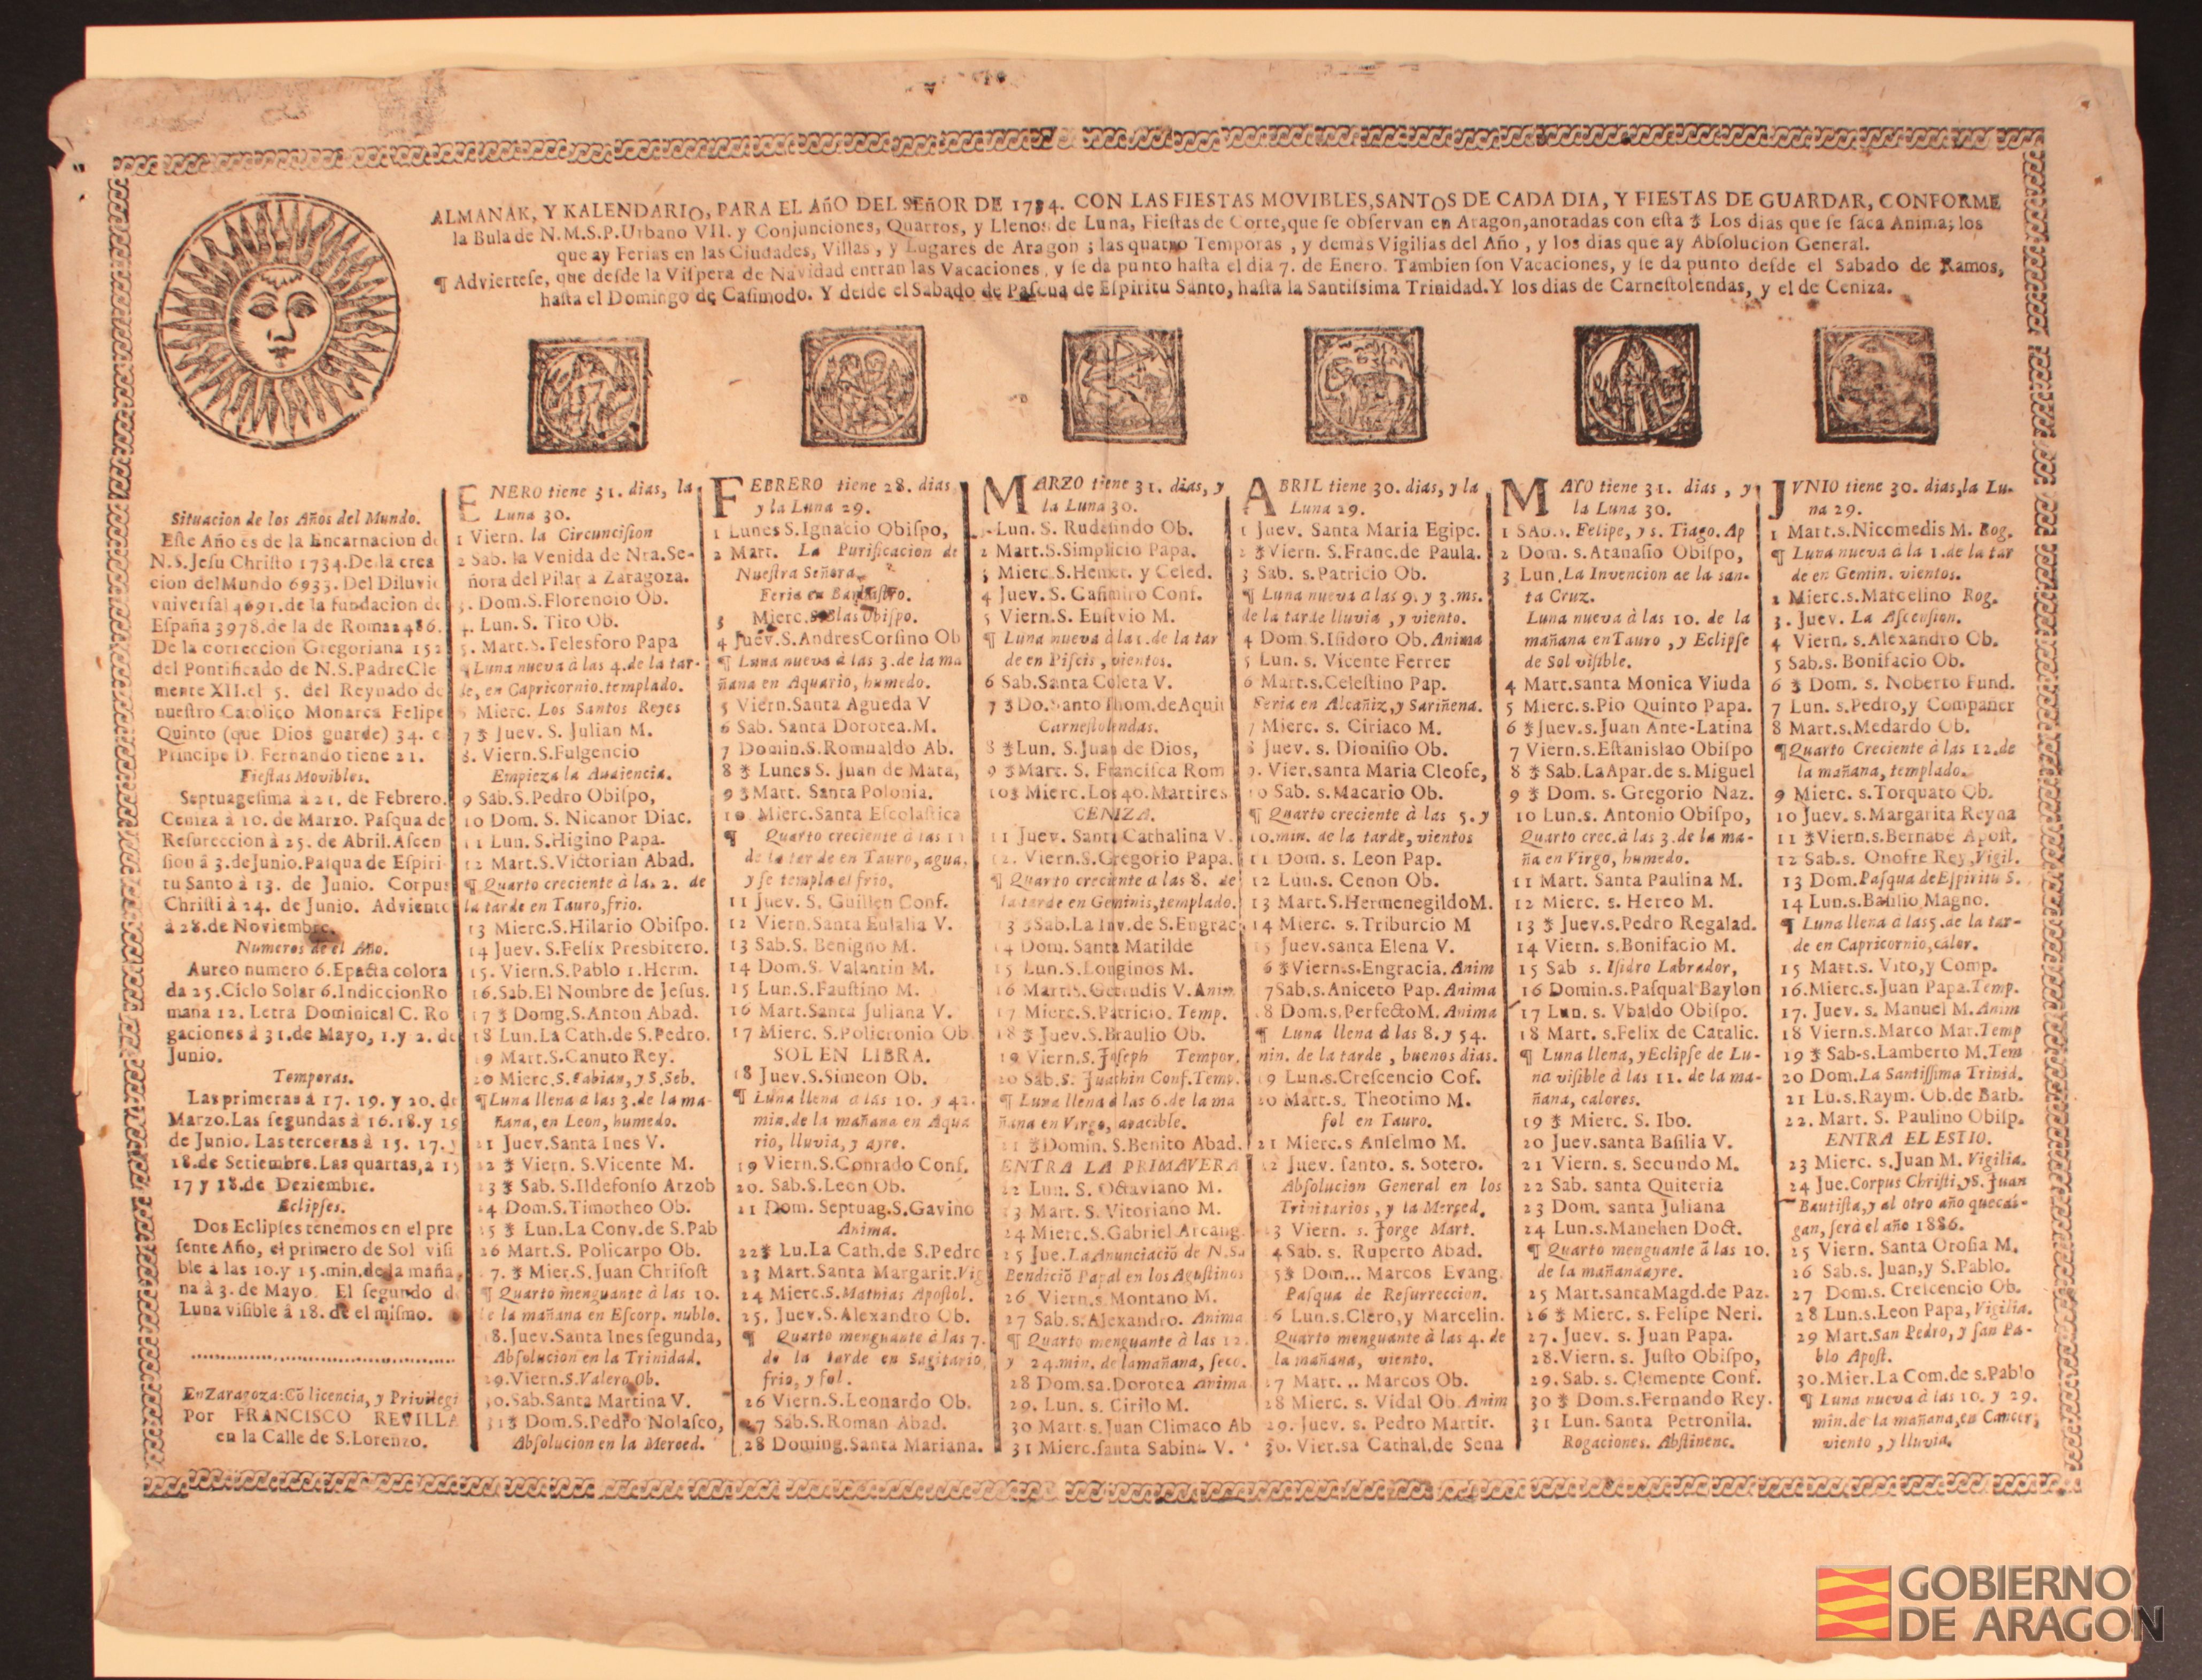 ALMANAK, Y KALENDARIO, PARA EL AñO DEL SEñOR DE 1734. CON LAS FIESTAS MOVIBLES, SANTOS DE CADA DIA, Y FIESTAS DE GUARDAR, CONFORME
la Bula de N.M.S.P. Urbano VII. y Conjunciones, Quartos, y Llenos de Luna, Fieſtas de Corte, que ſe obſervan en Aragon, anotadas con eſta ⚵ Los dias que ſe ſaca Anima; los
que ay Ferias en las Ciudades, Villas, y Lugares de Aragon; las quatro Temporas, y demàs Vigilias del Año, y los dias que ay Abſolucion General.
¶ Adviertefe, que deſde la Viſpera de Navidad entran las Vacaciones, y ſe da punto haſta el dia 7. de Enero. Tambien ſon Vacaciones, y ſe da punto deſde el Sabado de Ramos,
haſta el Domingo de Caſimodo. Y deſde el Sabado de Paſcua de Eſpiritu Santo, haſta la Santiſsima Trinidad. Y los dias de Carneſtolendas, y el de Ceniza.
Situacion de los Años del Mundo.
Eſte Año es de la Encarnacion de
N.S. Jeſu Chriſto 1734. De la crea
cion del Mundo 6933. Del Diluvio
vniverſal 4691. de la fundacion de
Eſpaña 3978. de la de Roma 2486.
De la correccion Gregoriana 152
del Pontificado de N.S. Padre Cle
mente XII. el 5. del Reynado de
nueſtro Catolico Monarca Felipe
Quinto (que Dios guarde) 34. e
Principe D. Fernando tiene 21.
Fieſtas Movibles.
Septuageſima à 21. de Febrero.
Ceniza à 10. de Marzo. Paſqua de
Reſureccion à 25. de Abril. Aſcen
ſion à 3. de Junio. Paſqua de Eſpiri
tu Santo à 13. de Junio. Corpus
Chriſti à 24. de Junio. Adviento
à 28. de Noviembre.
Numeros de el Año.
Aureo numero 6. Epacta colora
da 25. Ciclo Solar 6. Indiccion Ro
mana 12. Letra Dominical C. Ro
gaciones à 31. de Mayo, 1. y 2. de
Junio.
Temporas.
Las primeras à 17. 19. y 20. de
Marzo. Las ſegundas à 16. 18. y 19
de Junio. Las terceras à 15. 17. y
18. de Setiembre. Las quartas, à 15
17 y 18. de Deziembre.
Eclipſes.
Dos Eclipſes tenemos en el pre
ſente Año, el primero de Sol viſi
ble à las 10. y 15. min. de la maña
na à 3. de Mayo. El ſegundo de
Luna viſible à 18. de el miſmo.
En Zaragoza: Cõ licencia, y Privilegi
Por FRANCISCO REVILLA
en la Calle de S. Lorenzo.
ENERO tiene 31. dias, la
Luna 30.
1 Viern. la Circunciſion
2 Sab. la Venida de Nra. Se-
ñora del Pilar a Zaragoza.
3. Dom. S. Florencio Ob.
4. Lun. S. Tito Ob.
5. Mart. S. Telesforo Papa
¶ Luna nueva à las 4. de la tar-
de, en Capricornio. templado.
6 Mierc. Los Santos Reyes
7 ⚵ Juev. S. Julian M.
8. Viern. S. Fulgencio
Empieza la Audiencia.
9 Sab. S. Pedro Obiſpo,
10 Dom. S. Nicanor Diac.
11 Lun. S. Higino Papa.
12 Mart. S. Victorian Abad.
¶ Quarto creciente à las 2. de
la tarde en Tauro, frio.
13 Mierc. S. Hilario Obiſpo.
14 Juev. S. Felix Presbitero.
15. Viern. S. Pablo 1. Herm.
16. Sab. El Nombre de Jeſus.
17 ⚵ Domg. S. Anton Abad.
18 Lun. La Cath. de S. Pedro.
19 Mart. S. Canuto Rey.
20 Mierc. S. Fabian, y S. Seb.
¶ Luna llena à las 3. de la ma-
ñana, en Leon, humedo.
21 Juev. Santa Ines V.
22 ⚵ Viern. S. Vicente M.
23 ⚵ Sab. S. Ildefonſo Arzob
24 Dom. S. Timotheo Ob.
25 ⚵ Lun. La Conv. de S. Pab
26 Mart. S. Policarpo Ob.
27. ⚵ Mier. S. Juan Chriſoſt
¶ Quarto menguante à las 10.
de la mañana en Eſcorp. nublo.
28. Juev. Santa Ines ſegunda,
Abſolucion en la Trinidad.
29. Viern. S. Valero Ob.
30. Sab. Santa Martina V.
31 ⚵ Dom. S. Pedro Nolaſco,
Abſolucion en la Merced.
FEBRERO tiene 28. dias
y la Luna 29.
1 Lunes S. Ignacio Obiſpo,
2 Mart. La Purificacion de
Nueſtra Señora.
Feria en Barbaſtro.
3 Mierc. S. Blas Obiſpo.
4 Juev. S. Andres Corſino Ob
¶ Luna nueva à las 3. de la ma
ñana en Aquario, humedo.
5 Viern. Santa Agueda V
6 Sab. Santa Dorotea. M.
7 Domin. S. Romualdo Ab.
8 ⚵ Lunes S. Juan de Mata,
9 ⚵ Mart. Santa Polonia.
10 Mierc. Santa Eſcolaſtica
¶ Quarto creciente à las 11
de la tarde en Tauro, agua,
y ſe templa el frio.
11 Juev. S. Guillen Conf.
12 Viern. Santa Eulalia V.
13 Sab. S. Benigno M.
14 Dom. S. Valantin M.
15 Lun. S. Fauſtino M.
16 Mart. Santa Juliana V.
17 Mierc. S. Policronio Ob
SOL EN LIBRA.
18 Juev. S. Simeon Ob.
¶ Luna llena à las 10. y 42.
min. de la mañana en Aqua
rio, lluvia, y ayre.
19 Viern. S. Conrado Conf.
20. Sab. S. Leon Ob.
21 Dom. Septuag. S. Gavino
Anima.
22 ⚵ Lu. La Cath. de S. Pedro
23 Mart. Santa Margarit. Vig
24 Mierc. S. Mathias Apoſtol.
25. Juev. S. Alexandro Ob.
¶ Quarto menguante à las 7.
de la tarde en Sagitario,
frio, y ſol.
26 Viern. S. Leonardo Ob.
27 Sab. S. Roman Abad.
28 Doming. Santa Mariana.
MARZO tiene 31. dias, y
la Luna 30.
Lun. S. Rudeſindo Ob.
2 Mart. S. Simplicio Papa.
3 Mierc. S. Hemet. y Celed.
4 Juev. S. Caſimiro Conf.
5 Viern. S. Euſevio M.
¶ Luna nueva à la 1. de la tar
de en Piſcis, vientos.
6 Sab. Santa Coleta V.
7 ⚵ Do. Santo Thom. de Aquit
Carneſtolendas.
8 ⚵ Lun. S. Juan de Dios,
9 ⚵ Mart. S. Franciſca Rom
10 ⚵ Mierc. Los 40. Martires
CENIZA.
11 Juev. Santa Cathalina V.
12. Viern. S. Gregorio Papa.
¶ Quarto creciente a las 8. de
la tarde en Geminis, templado.
13 ⚵ Sab. La Inv. de S. Engrac
14 Dom. Santa Matilde
15 Lun. S. Longinos M.
16 Mart. S. Getrudis V. Anim.
17 Mierc. S. Patricio. Temp.
18 ⚵ Juev. S. Braulio Ob.
19 Viern. S. Joſeph Tempor.
20 Sab. S. Juachin Conf. Temp.
¶ Luna llena à las 6. de la ma
ñana en Virgo, apacible.
21 ⚵ Domin. S. Benito Abad.
ENTRA LA PRIMAVERA
22 Lun. S. Octaviano M.
23 Mart. S. Vitoriano M.
24 Mierc. S. Gabriel Arcang.
25 Jue. La Anunciaciõ de N. Sa
Bendiciõ Papal en los Aguſtinos
26. Viern. s. Montano M.
27 Sab. s. Alexandro. Anima
¶ Quarto menguante à las 12.
y 24. min. de la mañana, ſeco.
28 Dom. sa. Dorotea Anima
29. Lun. s. Cirilo M.
30 Mart. s. Juan Climaco Ab
31 Mierc. ſanta Sabina V.
ABRIL tiene 30. dias, y la
Luna 29.
1 Juev. Santa Maria Egipc.
2 ⚵ Viern. S. Franc. de Paula.
3 Sab. s. Patricio Ob.
¶ Luna nueva a las 9. y 3. ms.
de la tarde lluvia, y viento.
4 Dom. S. Iſidoro Ob. Anima
5 Lun. s. Vicente Ferrer
6 Mart. s. Celeſtino Pap.
Feria en Alcañiz, y Sariñena.
7 Mierc. s. Ciriaco M.
8 Juev. s. Dioniſio Ob.
9. Vier. santa Maria Cleofe,
10 Sab. s. Macario Ob.
¶ Quarto creciente à las 5. y
10. min. de la tarde, vientos
11 Dom. s. Leon Pap.
12 Lun. s. Cenon Ob.
13 Mart. S. Hermenegildo M.
14 Mierc. s. Triburcio M
15 Juev. santa Elena V.
16 ⚵ Viern. s. Engracia. Anim
17 Sab. s. Aniceto Pap. Anima
18 Dom. s. Perfecto M. Anima
¶ Luna llena à las 8. y 54.
min. de la tarde, buenos dias.
19 Lun. s. Creſcencio Cof.
20 Mart. s. Theotimo M.
ſol en Tauro.
21 Mierc. s Anſelmo M.
22 Juev. ſanto. s. Sotero.
Abſolucion General en los
Trinitarios, y la Merced.
23 Viern. s. Jorge Mart.
24 Sab. s. Ruperto Abad.
25 ⚵ Dom... Marcos Evang.
Paſqua de Reſurreccion.
26 Lun. s. Clero, y Marcelin.
Quarto menguante à las 4. de
la mañana, viento.
27 Mart. .. Marcos Ob.
28 Mierc. s. Vidal Ob. Anim
29. Juev. s. Pedro Martir.
30. Vier. sa Cathal. de Sena
MAYO tiene 31. dias, y
la Luna 30.
1 SAb. s. Felipe, y s. Tiago. Ap
2 Dom. s. Atanaſio Obiſpo,
3 Lun. La Invencion de la san-
ta Cruz.
Luna nueva à las 10. de la
mañana en Tauro, y Eclipſe
de Sol viſible.
4 Mart. santa Monica Viuda
5 Mierc. s. Pio Quinto Papa.
6 ⚵ Juev. s. Juan Ante-Latina
7 Viern. s. Eſtanislao Obiſpo
8 ⚵ Sab. La Apar. de s. Miguel
9 ⚵ Dom. s. Gregorio Naz.
10 Lun. s. Antonio Obiſpo,
Quarto crec. à las 3. de la ma-
ña en Virgo, humedo.
11 Mart. Santa Paulina M.
12 Mierc. s. Hereo M.
13 ⚵ Juev. s. Pedro Regalad.
14 Viern. s. Bonifacio M.
15 Sab s. Iſidro Labrador,
16 Domin. s. Paſqual Baylon
17 Lun. s. Vbaldo Obiſpo.
18 Mart. s. Felix de Catalic.
¶ Luna llena, y Eclipſe de Lu-
na viſible à las 11. de la ma-
ñana, calores.
19 ⚵ Mierc. S. Ibo.
20 Juev. santa Baſilia V.
21 Viern. s. Secundo M.
22 Sab. santa Quiteria
23 Dom. santa Juliana
24 Lun. s. Manchen Doct.
¶ Quarto menguante à las 10.
de la mañana ayre.
25 Mart. santa Magd. de Paz.
26 ⚵ Mierc. s. Felipe Neri.
27. Juev. s. Juan Papa.
28. Viern. s. Juſto Obiſpo,
29. Sab. s. Clemente Conf.
30 ⚵ Dom. s. Fernando Rey.
31 Lun. Santa Petronila.
Rogaciones. Abſtinenc.
JVNIO tiene 30. dias, la Lu-
na 29.
1 Mart. s. Nicomedis M. Rog.
¶ Luna nueva à la 1. de la tar
de en Gemin. vientos.
2 Mierc. s. Marcelino Rog.
3. Juev. La Aſcenſion.
4 Viern. s. Alexandro Ob.
5 Sab. s. Bonifacio Ob.
6 ⚵ Dom. s. Noberto Fund.
7 Lun. s. Pedro, y Compañer
8 Mart. s. Medardo Ob.
¶ Quarto Creciente à las 12. de
la mañana, templado.
9 Mierc. s. Torquato Ob.
10 Juev. s. Margarita Reyna
11 ⚵ Viern. s. Bernabe Apoſt,
12 Sab. s. Onofre Rey, Vigil.
13 Dom. Paſqua de Eſpiritu S.
14 Lun. s. Baſilio Magno.
¶ Luna llena à las 5. de la tar-
de en Capricornio, calor.
15 Mart. s. Vito, y Comp.
16. Mierc. s. Juan Papa. Temp.
17. Juev. s. Manuel M. Anim
18 Viern. s. Marco Mar. Temp
19 ⚵ Sab-s. Lamberto M. Tem
20 Dom. La Santiſſima Trinid.
21 Lu. s. Raym. Ob. de Barb.
22. Mart. S. Paulino Obiſp.
ENTRA EL ESTIO.
23 Mierc. s. Juan M. Vigilia.
24 Jue. Corpus Chriſti, y S. Juan
Bautiſta, y al otro año que cai-
gan, ſerà el año 1886.
25 Viern. Santa Oroſia M.
26 Sab. s. Juan, y S. Pablo.
27 Dom. s. Creſcencio Ob.
28 Lun. s. Leon Papa, Vigilia.
29 Mart. San Pedro, y ſan Pa-
blo Apoſt.
30. Mier. La Com. de s. Pablo
¶ Luna nueva à las 10. y 29.
min. de la mañana, en Cancer,
viento, y lluvia.
GOBIERNO
DE ARAGON